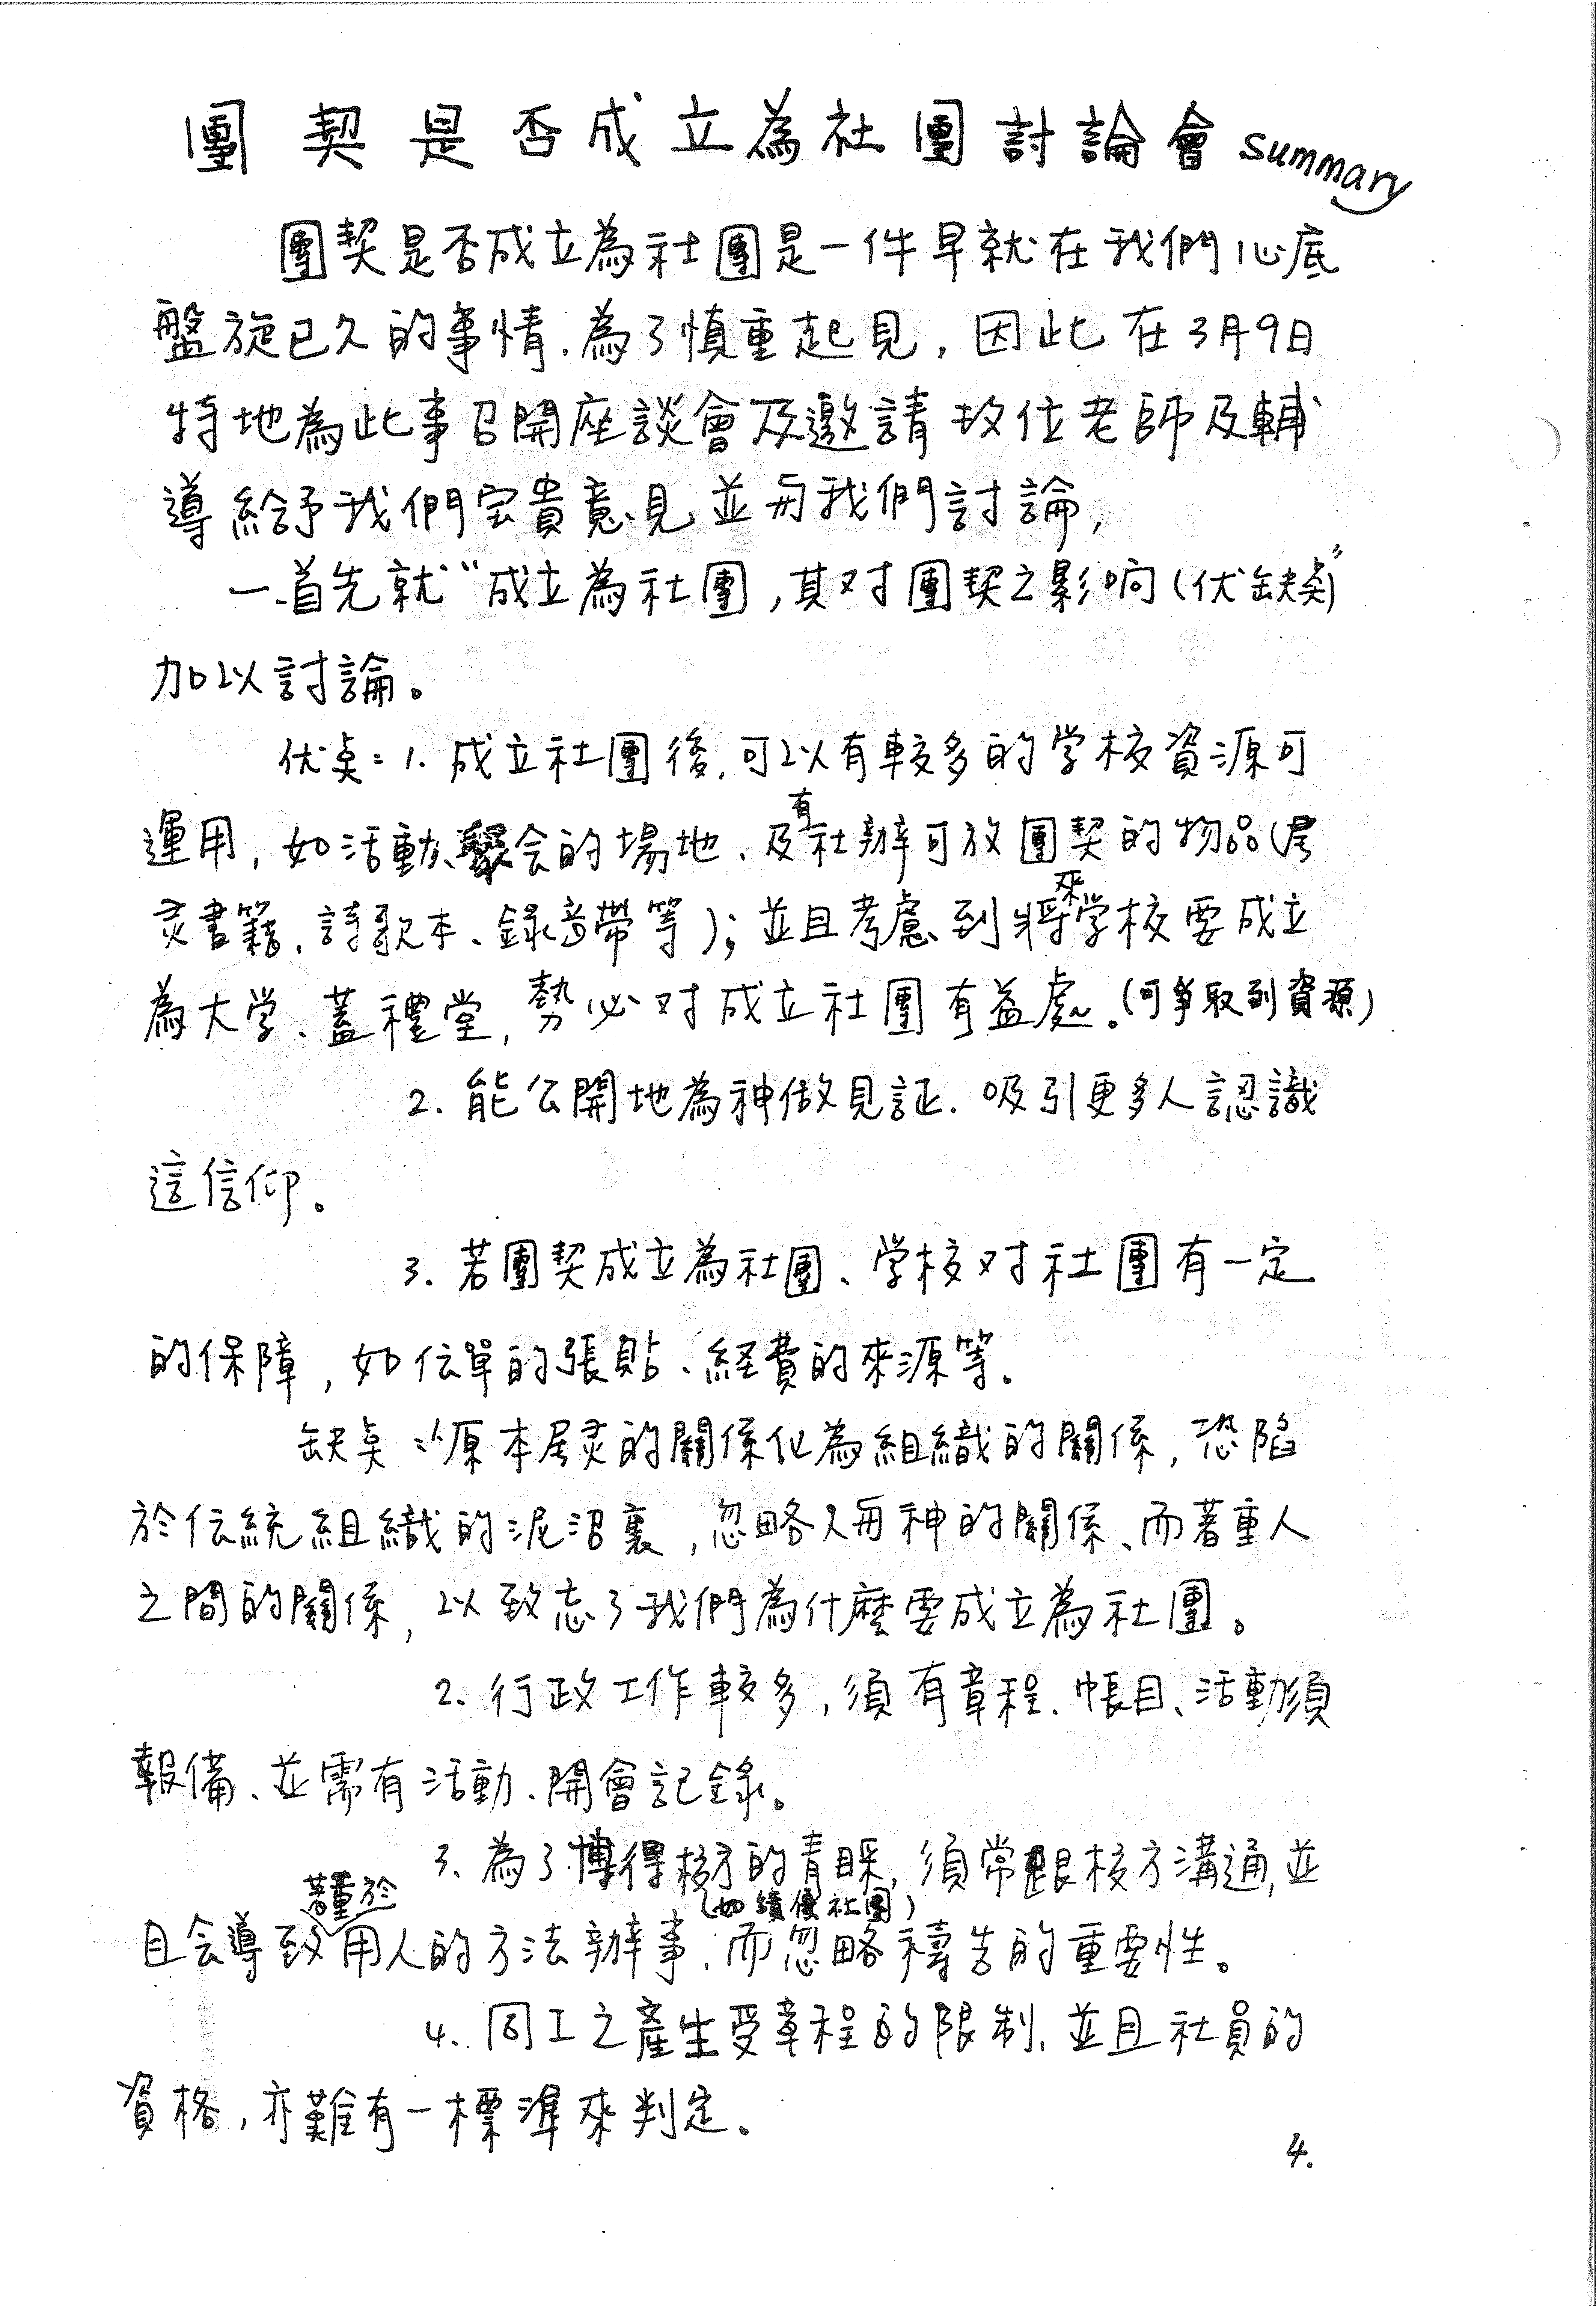 團契是否成立為社團討論會 summary
團契是否成立為社團是一件早就在我們心底
盤旋已久的事情.為了慎重起見,因此在3月9日
特地為此事召開座談會及邀請 位老師及輔
導給予我們宝貴意見並与我們討論,
一.首先就“成立為社團,其对團契之影响(优缺奌)”
加以討論。
优奌:1.成立社團後,可以有較多的学校資源可
運用,如活動、聚会的場地、及有社辦可放團契的物品(属
灵書籍、詩歌本、錄音帶等);並且考慮到將來学校要成立
為大学、蓋禮堂,勢必对成立社團有益處。(可爭取到資源)
2.能公開地為神做見証.吸引更多人認識
這信仰。
3.若團契成立為社團、学校对社團有一定
的保障,如伝單的張貼、経費的來源等。
缺奌:1.原本居灵的關係化為組織的關係,恐陷
於伝統組織的泥沼裏,忽略人与神的關係、而著重人
之間的關係,以致忘了我們為什麼要成立為社團。
2.行政工作較多,須有章程.帳目、活動須
報備、並需有活動、開會記錄。
3、為了博得校方的青睬,須常跟校方溝通,並
且会導致著重於用人的方法辦事.(如績優社團)而忽略禱告的重要性。
4、同工之產生受章程的限制、並且社員的
資格,亦難有一標準來判定。
4.